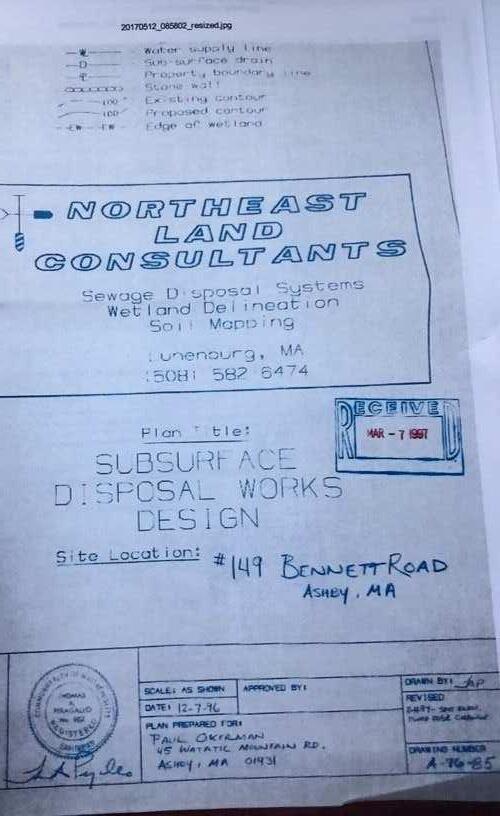 20170512_085802_resized.jpg
W Water supply line
D Sub-surface drain
Property boundary line
Stone wall
100 Existing contour
100 Proposed contour
EW EW Edge of wetland
NORTHEAST
LAND
CONSULTANTS
Sewage Disposal Systems
Wetland Delineation
Soil Mapping
Lunenburg, MA
(508) 582 6474
RECEIVED
MAR - 7 1997
Plan Title:
SUBSURFACE
DISPOSAL WORKS
DESIGN
Site Location: #149 BENNETT ROAD
ASHBY, MA
COMMONWEALTH OF MASSACHUSETTS
THOMAS
REGISTERED
SANITARIAN
SCALE: AS SHOWN
APPROVED BY:
DRAWN BY:
DATE: 12-7-96
REVISED
PLAN PREPARED FOR:
PAUL OKERMAN
45 WATATIC MOUNTAIN RD.
ASHBY, MA 01431
DRAWING NUMBER
A-96-85